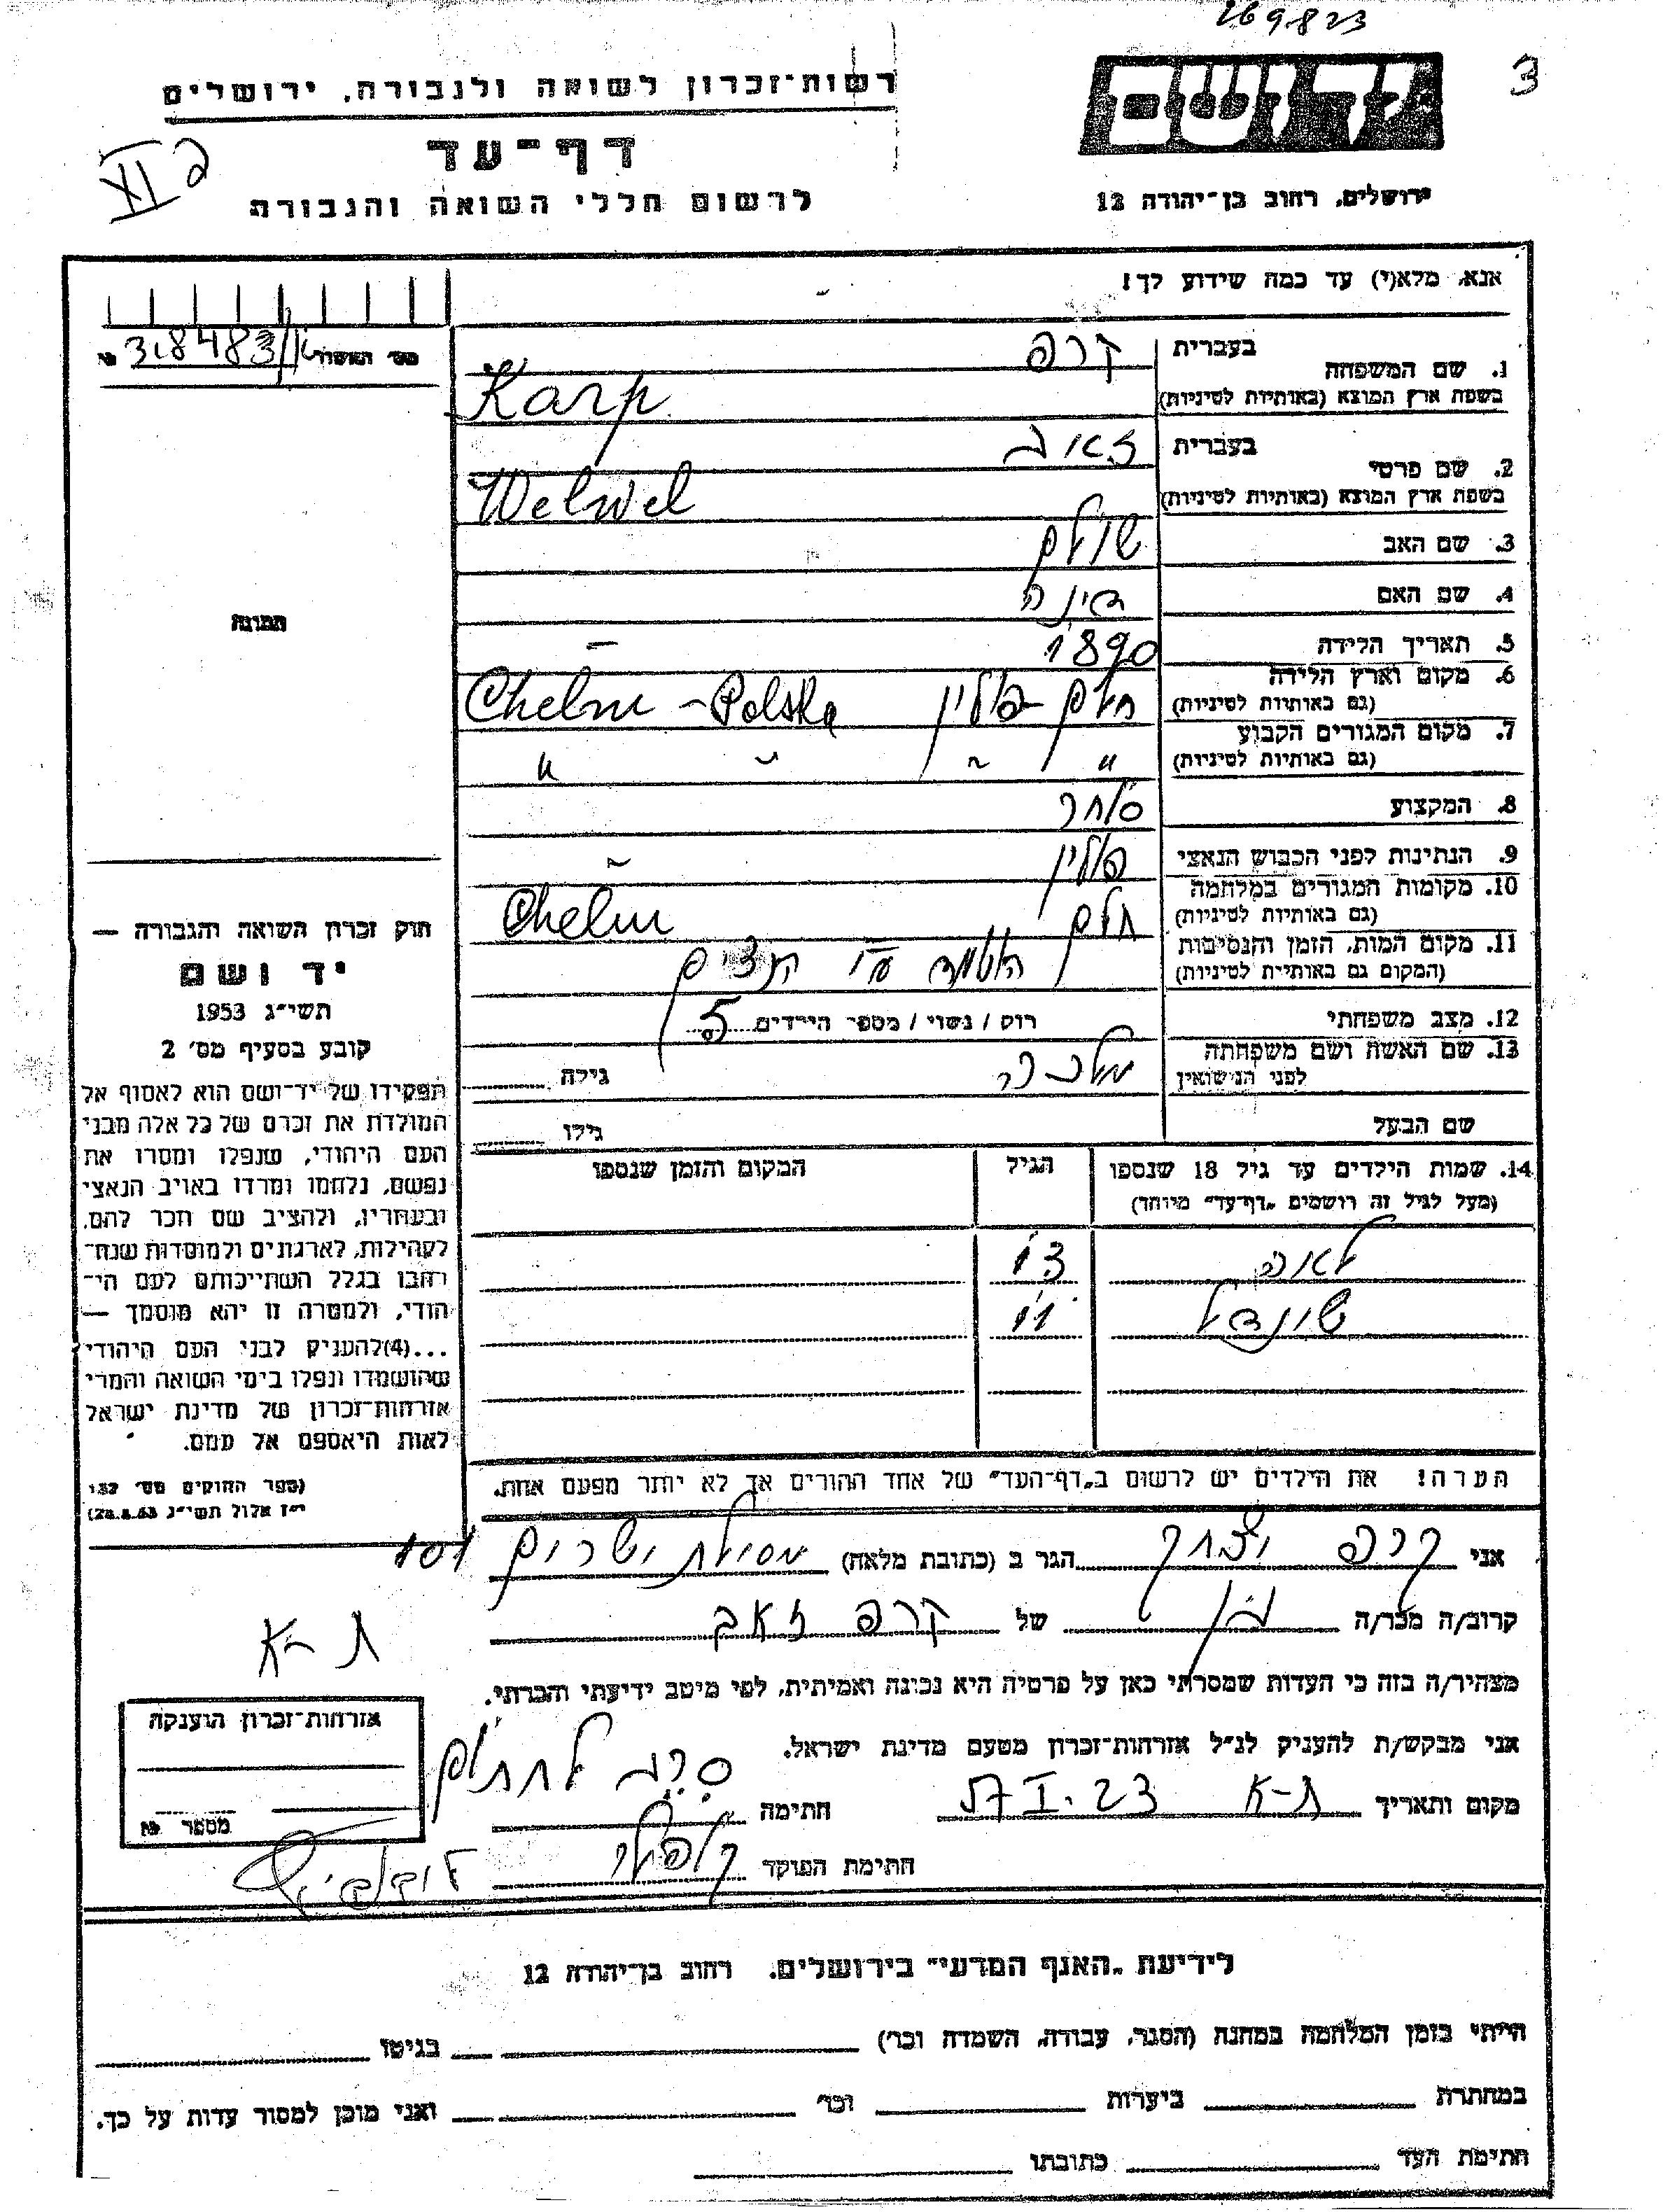 169823
3
יד ושם
ירושלים, רחוב בן־יהודה 12
רשות־זכרון לשואה ולגבורה, ירושלים
דף־עד
לרשום חללי השואה והגבורת
XI 2
אנא, מלא(י) עד כמה שידוע לך!
318483
1. שם המשפחה
בעברית קרפ
בשפת ארץ המוצא (באותיות לטיניות) Karp
2. שם פרטי
בעברית זאב
בשפת ארץ המוצא (באותיות לטיניות) Welwel
3. שם האב שולם
4. שם האם דינה
5. תאריך הלידה 1890 –
6. מקום וארץ הלידה (גם באותיות לטיניות) חלם – פולין Chelm – Polska
7. מקום המגורים הקבוע (גם באותיות לטיניות) " " " "
8. המקצוע סוחר
9. הנתינות לפני הכבוש הנאצי פולין
10. מקומות המגורים במלחמה (גם באותיות לטיניות) חלם Chelm
11. מקום המות, הזמן והנסיבות (המקום גם באותיות לטיניות) הושמד ע"י הנצים
12. מצב משפחתי רוק / נשוי / מספר הילדים 5
13. שם האשה ושם משפחתה לפני הנישואין מלכה גילה
שם הבעל גילו
14. שמות הילדים עד גיל 18 שנספו
(מעל לגיל זה רושמים "דף־עד" מיוחד)
הגיל
המקום והזמן שנספו
לאה
שינדל
הערה! את הילדים יש לרשום ב"דף־העד" של אחד ההורים אך לא יותר מפעם אחת.
תמונה
חוק זכרון השואה והגבורה —
יד ושם
תשי״ג 1953
קובע בסעיף מס׳ 2
תפקידו של יד־ושם הוא לאסוף אל
המולדת את זכרם של כל אלה מבני
העם היהודי, שנפלו ומסרו את
נפשם, נלחמו ומרדו באויב הנאצי
ובעוזריו, ולהציב שם וזכר להם,
לקהילות, לארגונים ולמוסדות שנח־
רבו בגלל השתייכותם לעם הי־
הודי, ולמטרה זו יהא מוסמך —
...(4)להעניק לבני העם היהודי
שהושמדו ונפלו בימי השואה והמרי
אזרחות־זכרון של מדינת ישראל
לאות היאספם אל עמם.
(ספר החוקים מס׳ 132
י״ז אלול תשי״ג 28.8.53)
אני קרפ יצחק הגר ב (כתובת מלאה) מסילת ישרים 101
ת-א
קרוב/ה מכר/ה בן של קרפ זאב
מצהיר/ה בזה כי העדות שמסרתי כאן על פרטיה היא נכונה ואמיתית, לפי מיטב ידיעתי והכרתי.
אני מבקש/ת להעניק לנ״ל אזרחות־זכרון מטעם מדינת ישראל.
מקום ותאריך ת-א 23.I.57 חתימה סרב לחתום
חתימת הפוקד
אזרחות־זכרון הוענקה
מספר
לידיעת "האגף המדעי" בירושלים, רחוב בן־יהודה 12
הייתי בזמן המלחמה במחנה (הסגר, עבודה, השמדה וכו׳) בגיטו
במחתרת ביערות וכו׳ ואני מוכן למסור עדות על כך.
חתימת העד כתובתו